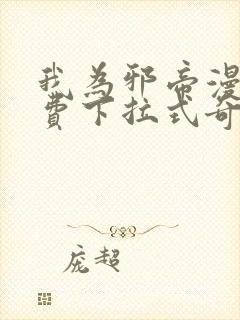 我為邪帝漫
費下拉式奇
庞超